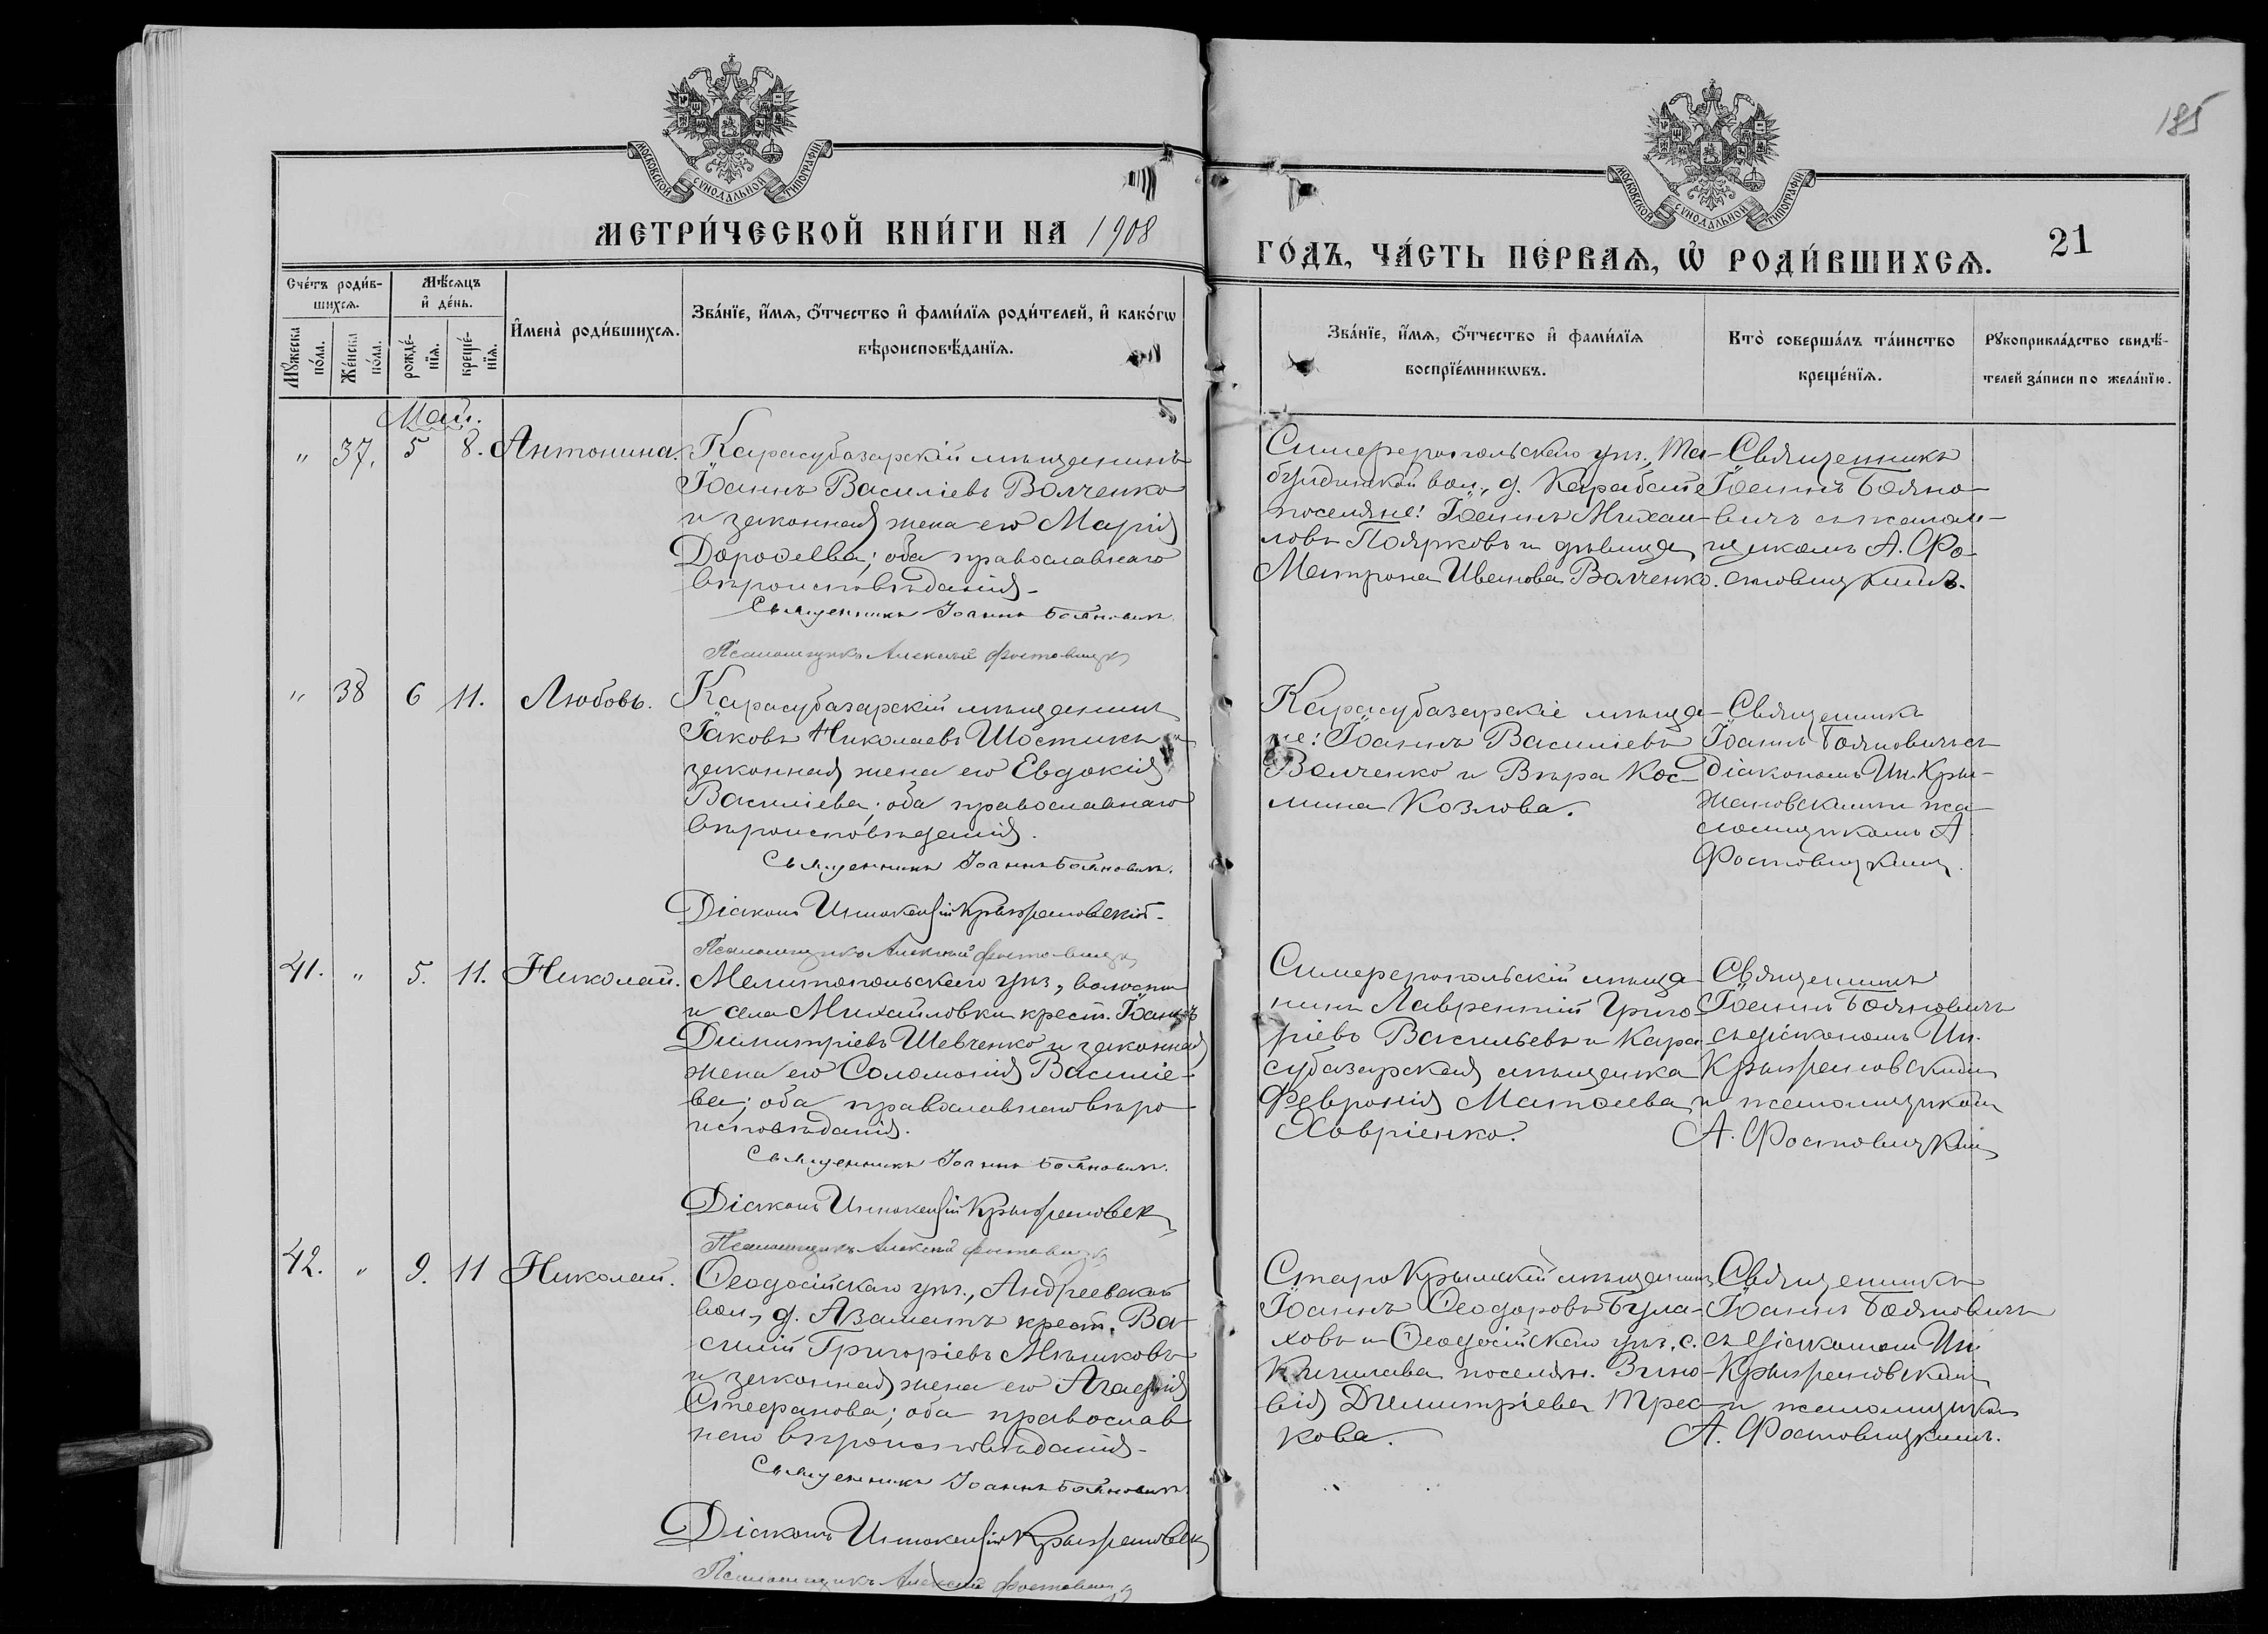 185
МОСКОВСКОЙ СѴНОДАЛЬНОЙ ТИПОГРАФІИ
МОСКОВСКОЙ СѴНОДАЛЬНОЙ ТИПОГРАФІИ
МЕТРИ́ЧЕСКОЙ КНИ́ГИ НА 1908
ГО́ДЪ, ЧА́СТЬ ПЕ́РВАѦ, Ѡ҆ РОДИ́ВШИХСѦ.
21
Сче́тъ роди́в-
шихсѧ.
Мꙋ́жеска
по́ла.
Же́нска
по́ла.
Мѣ́сѧцъ
и҆ де́нь.
рожде́-
нїѧ.
креще́-
нїѧ.
И҆мена̀ роди́вшихсѧ.
Зва́нїе, и҆́мѧ, ѻ҆́тчество и҆ фами́лїѧ роди́телей, и҆ како́гѡ
вѣроисповѣ́данїѧ.
Зва́нїе, и҆́мѧ, ѻ҆́тчество и҆ фами́лїѧ
воспрїе́мникѡвъ.
Кто̀ соверша́лъ та́инство
креще́нїѧ.
Рꙋкоприкла́дство свидѣ́-
телей за́писи по жела́нїю.
Май.
" 37. 5 8. Антонина.
Карасубазарскій мѣщанинъ
Іоаннъ Василіевъ Волченко
и законная жена его Марія
Дороѳеева; оба православнаго
вѣроисповѣданія.
Священникъ Іоаннъ Бояновичъ
Псаломщикъ Алексѣй Фостовицкій
Симферопольскаго уѣз., Та-
булдинской вол., д. Карабай
поселяне: Іоаннъ Михаи-
ловъ Поярковъ и дѣвица
Матрона Иванова Волченко.
Священникъ
Іоаннъ Бояно-
вичъ съ псалом-
щикомъ А. Фо-
стовицкимъ.
" 38 6 11. Любовь.
Карасубазарскій мѣщанинъ
Іаковъ Николаевъ Шостикъ и
законная жена его Евдокія
Василіева; оба православнаго
вѣроисповѣданія.
Священникъ Іоаннъ Бояновичъ.
Діаконъ Иннокентій
Псаломщикъ Алексѣй Фостовицкій
Карасубазарскіе мѣща-
не: Іоаннъ Василіевъ
Волченко и Вѣра Кос-
мина Козлова.
Священникъ
Іоаннъ Бояновичъ съ
діакономъ Ин.
и пса-
ломщикомъ А.
Фостовицким
41. " 5. 11. Николай.
Мелитопольскаго уѣз., волости
и села Михайловки крест. Іоаннъ
Димитріевъ Шевченко и законная
жена его Соломонія Василіе-
ва; оба православнаго вѣро
исповѣданія.
Священникъ Іоаннъ Бояновичъ.
Діаконъ Иннокентій
Псаломщикъ Алексѣй Фостовицкій
Симферопольскій мѣща-
нинъ Лаврентій Григо-
ріевъ Васильевъ и Кара-
субазарская мѣщанка
Февронія Матѳеева
Ховріенко.
Священникъ
Іоаннъ Бояновичъ
съ діакономъ Ин.
и псаломщиком
А. Фостовицким
42. " 9. 11 Николай.
Ѳеодосійскаго уѣз., Андреевской
вол., д. Азаматъ крест. Ва-
силій Григоріевъ Мѣшковъ
и законная жена его Агаѳія
Стефанова; оба православ
наго вѣроисповѣданія.
Священникъ Іоаннъ Бояновичъ
Діаконъ Иннокентій
Псаломщикъ Алексѣй Фостовицкій
Старо Крымскій мѣщанинъ
Іоаннъ Ѳеодоровъ Була-
ховъ и Ѳеодосійскаго уѣз. с.
Кишлава поселян. Зино-
вія Димитріева Трес-
кова.
Священникъ
Іоаннъ Бояновичъ
съ діакономъ Ин.
и псаломщиком
А. Фостовицкимъ.